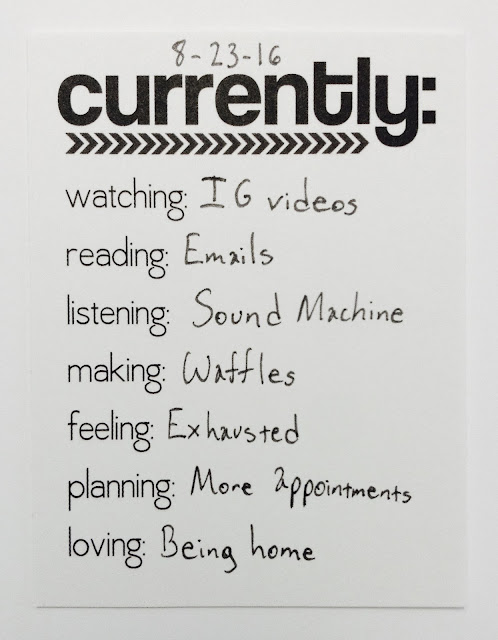 8-23-16
currently:
watching: IG videos
reading: Emails
listening: Sound Machine
making: Waffles
feeling: Exhausted
planning: More appointments
loving: Being home